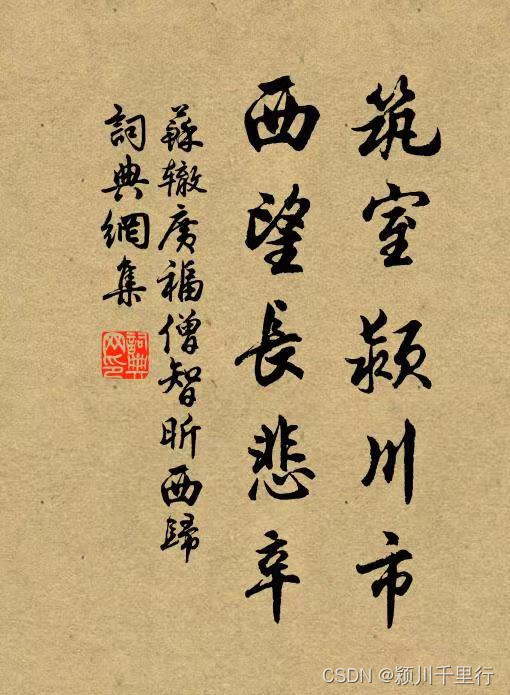 筑室颍川市
西望長悲辛
蘇辙廣福僧智昕西歸
詞典網集
詞典网印
CSDN @颍川千里行